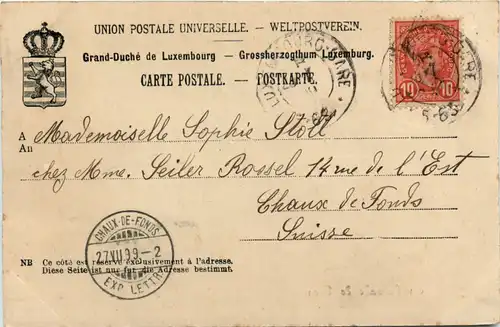 UNION POSTALE UNIVERSELLE. – WELTPOSTVEREIN.
Grand-Duché de Luxembourg - Grossherzogthum Luxemburg.
CARTE POSTALE. – POSTKARTE.
LUXEMBOURG-GARE
10 10
A Mademoiselle Sophie Stoll
An
chez Mme. Seiler Rossel 14 rue de l'Est
Chaux de Fonds
Suisse
CHAUX-DE-FONDS
27.VII.99.-2
EXP. LETTR.
NB Ce côté est réservé exclusivement à l'adresse.
Diese Seite ist nur für die Adresse bestimmt.